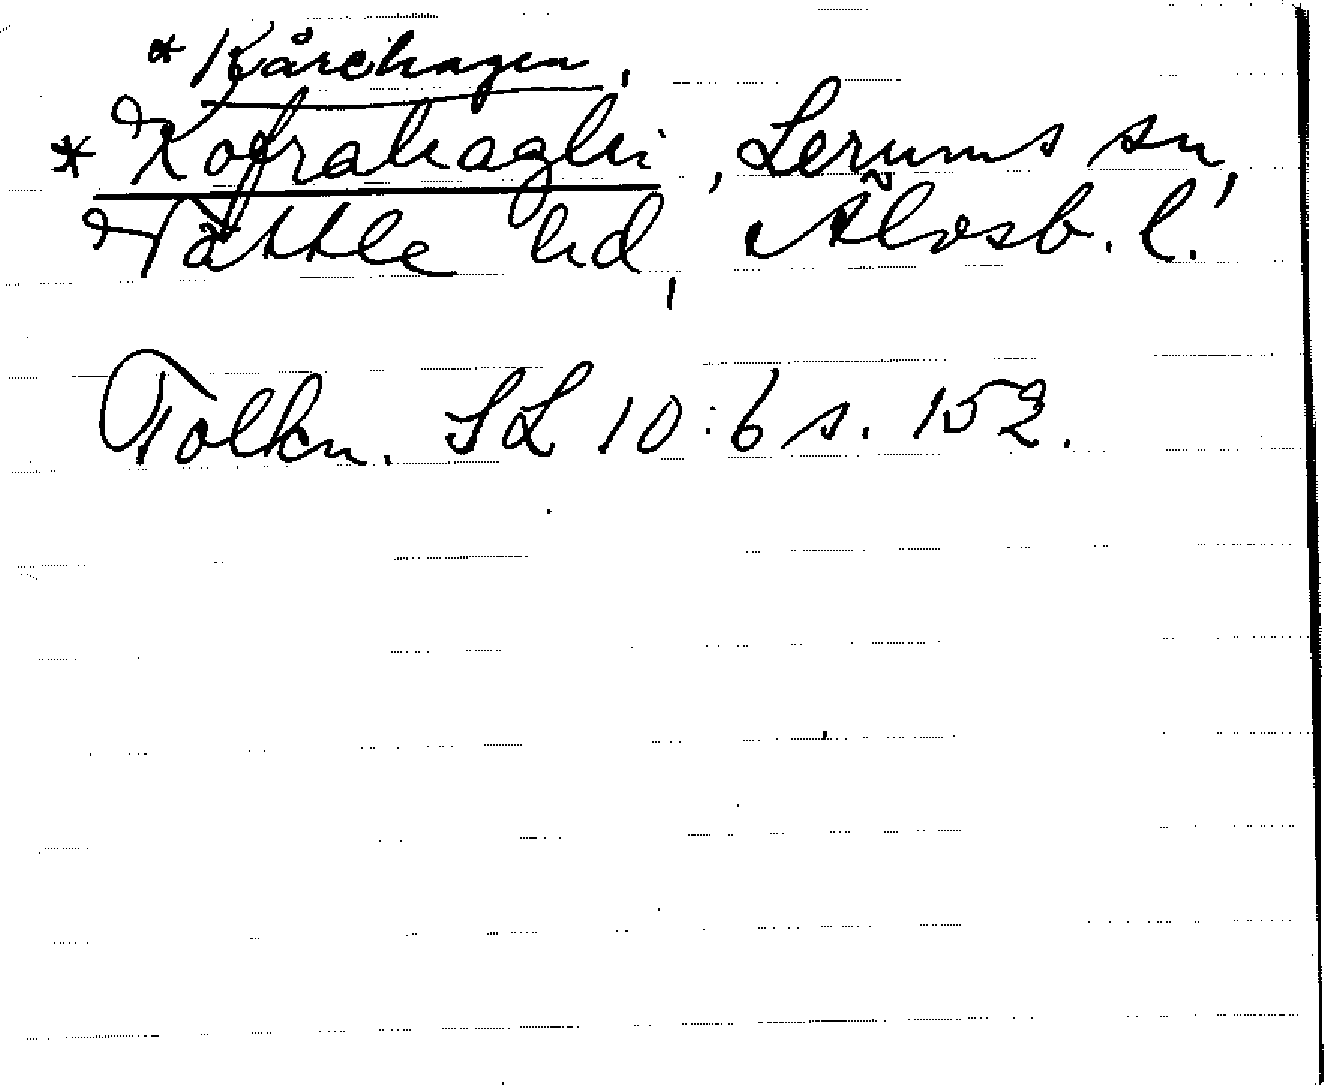 * Kårehagen,
* Kofrahaghi, Lerums sn,
Vättle hd, Älvsb. l.
Tolkn. SL 10:6 s. 152.